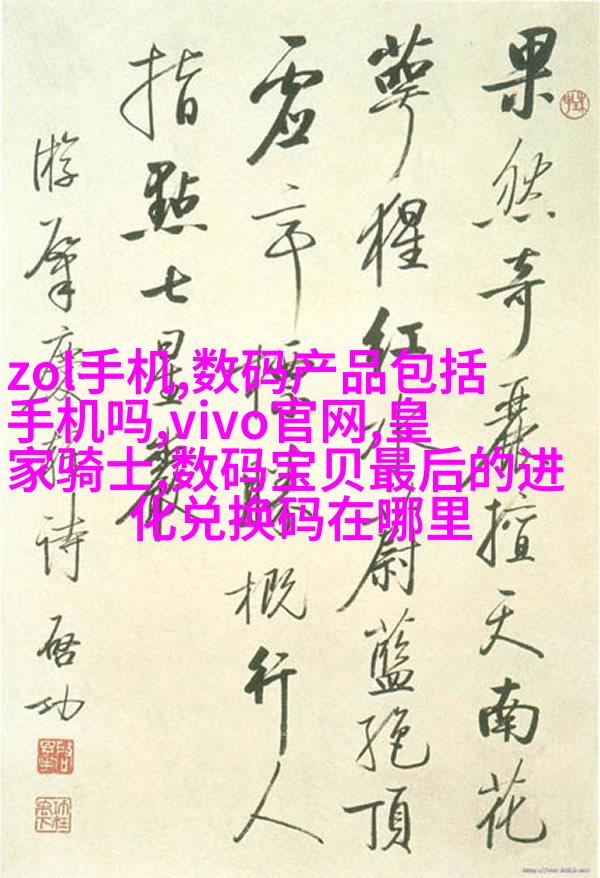 果然奇麗擅天南花
萼猩紅蔚藍絕頂
虛亭標勝概行人
指點七星巖
游肇慶詩 啓功
zol手机,数码产品包括
手机吗,vivo官网,皇
家骑士,数码宝贝最后的进
化兑换码在哪里